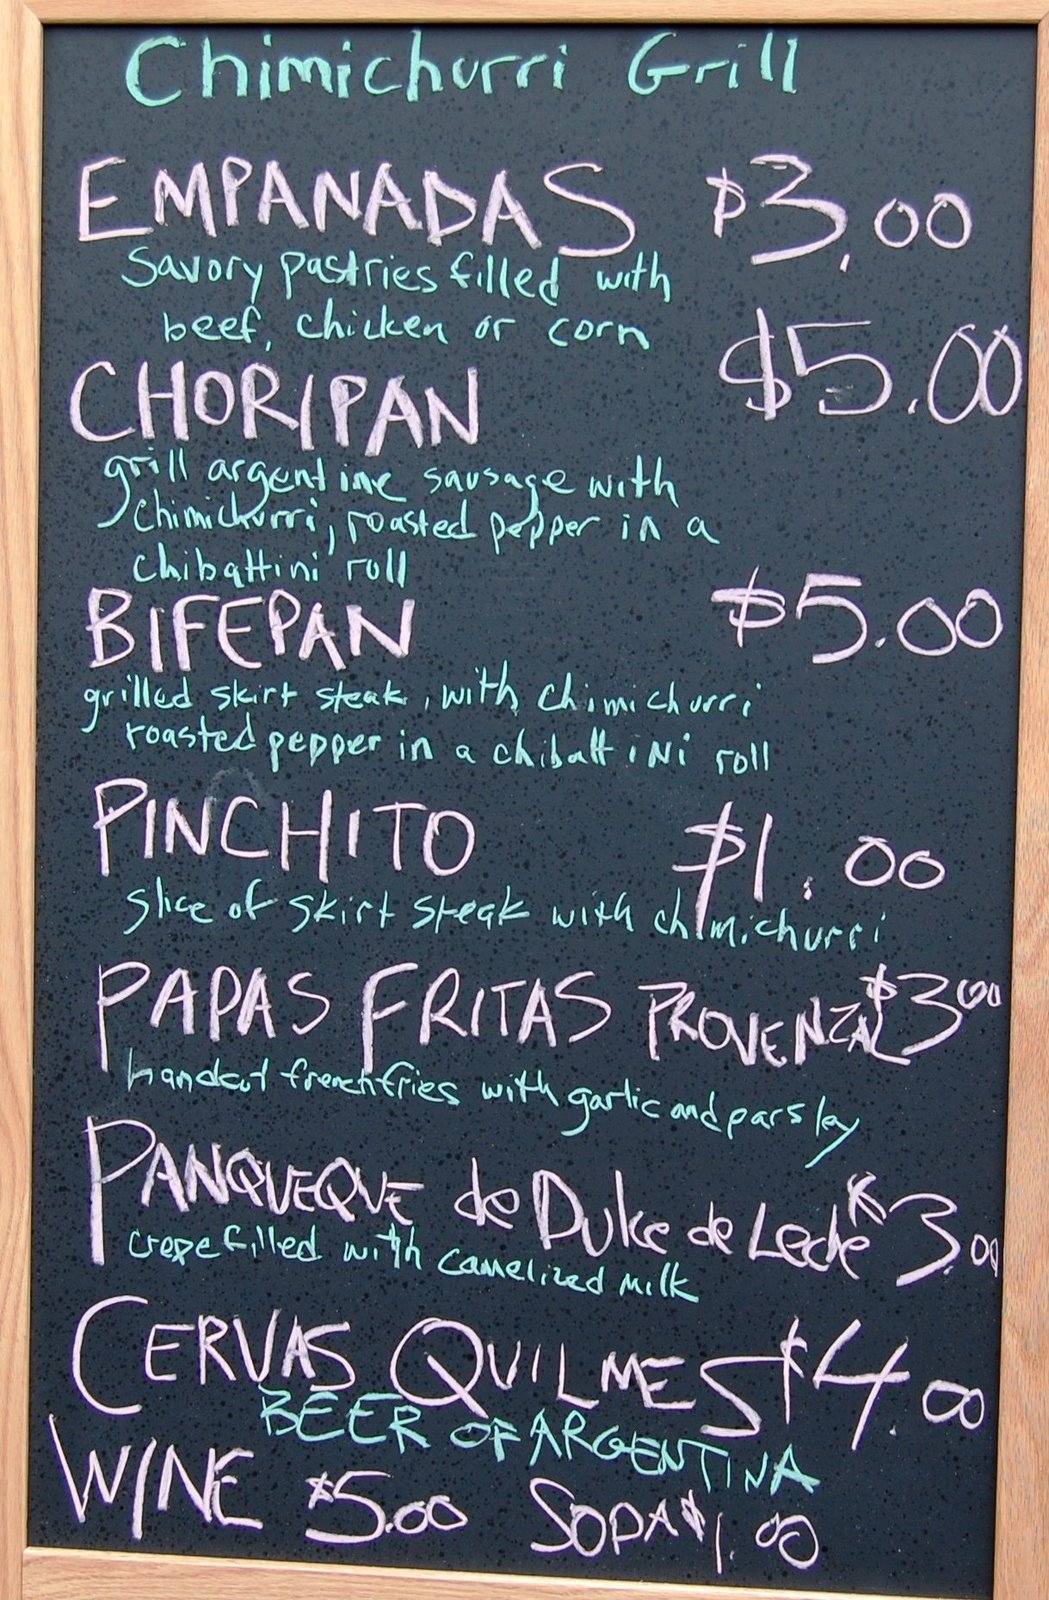 Chimichurri Grill
EMPANADAS $3.00
Savory pastries filled with
beef, chicken or corn
CHORIPAN $5.00
grill argentine sausage with
chimichurri, roasted pepper in a
chibattini roll
BIFEPAN $5.00
grilled skirt steak, with chimichurri
roasted pepper in a chibattini roll
PINCHITO $1.00
slice of skirt steak with chimichurri
PAPAS FRITAS PROVENZAL $3.00
handcut french fries with garlic and parsley
PANQUEQUE de Dulce de Leche $3.00
crepe filled with camelized milk
CERVAS QUILMES $4.00
BEER OF ARGENTINA
WINE $5.00 SODA $1.00